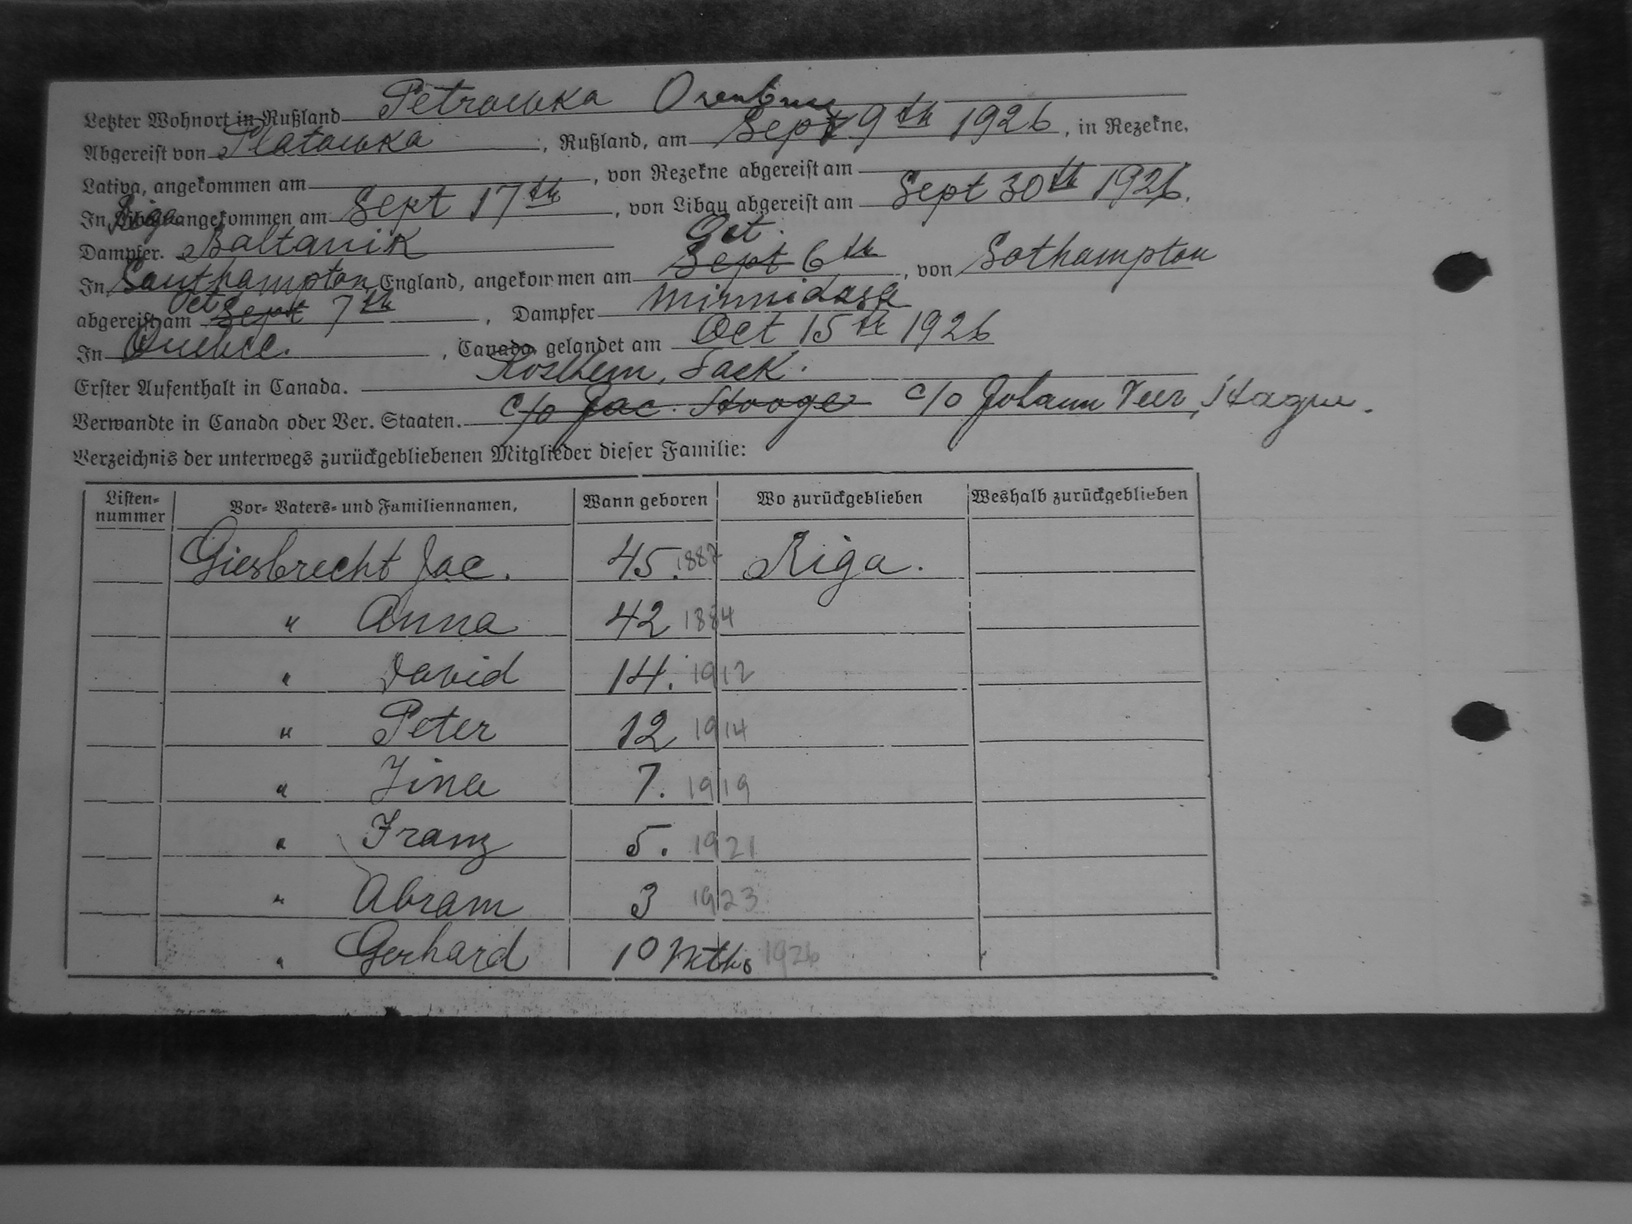 Letzter Wohnort in Rußland Petrowka Orenburg
Abgereist von Platowka, Rußland, am Sept 9th 1926, in Rezekne.
Lativa, angekommen am , von Rezekne abgereist am
In Riga angekommen am Sept 17th, von Libau abgereist am Sept 30th 1926.
Dampfer. Baltanik Oct.
In Southampton England, angekommen am Sept 6th, von Sothampton
Oct
abgereist am Sept 7th, Dampfer
In Quebec. , Canada gelandet am Oct 15th 1926
Erster Aufenthalt in Canada. Rosthern, Sack.
Verwandte in Canada oder Ver. Staaten. c/o Jac. Hooge c/o Johann Veer, Hague.
Verzeichnis der unterwegs zurückgebliebenen Mitglieder dieser Familie:
Listen-nummer Vor- Vaters- und Familiennamen, Wann geboren Wo zurückgeblieben Weshalb zurückgeblieben
Giesbrecht Jac. 45. Riga.
" Anna 42 1884
" David 14. 1912
" Peter 12 1914
" Tina 7. 1919
" Franz 5. 1921
" Abram 3 1923
" Gerhard 10 Mths 1926